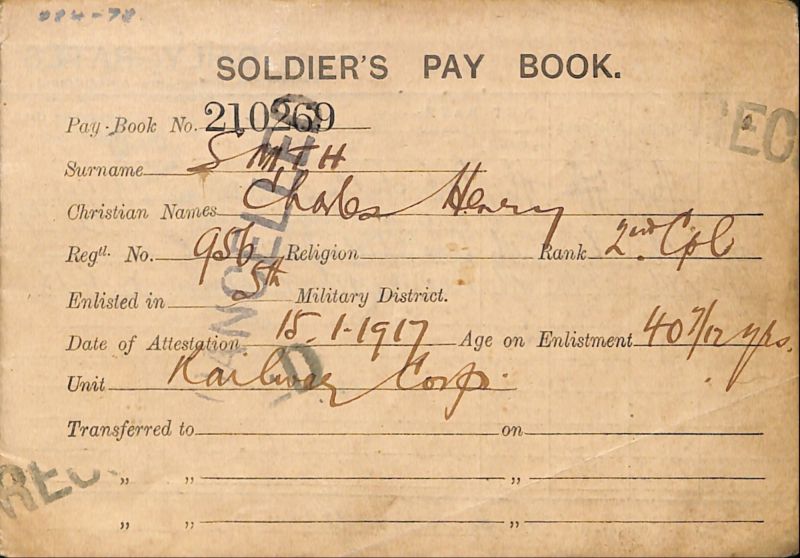 084-78
SOLDIER'S PAY BOOK.
Pay-Book No. 210269
Surname SMITH
Christian Names Charles Henry
Regtl. No. 956 Religion Rank 2nd Cpl
Enlisted in 5th Military District.
Date of Attestation 15.1.1917 Age on Enlistment 40 7/12 yrs.
Unit Railway Corps.
Transferred to on
" " "
" " "
CANCELLED
REC
REC
D